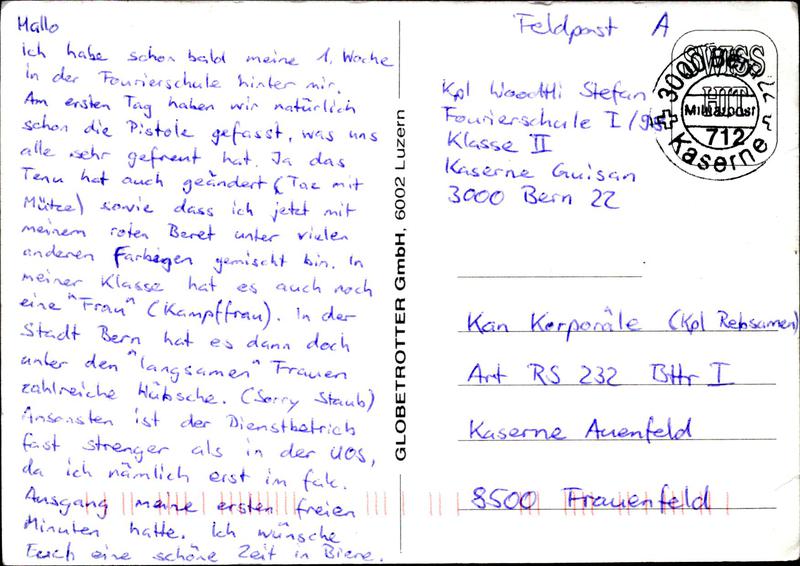 Hallo
ich habe schon bald meine 1. Woche
in der Fourierschule hinter mir.
Am ersten Tag haben wir natürlich
schon die Pistole gefasst, was uns
alle sehr gefreut hat. Ja das
Tenu hat auch geändert (Taz mit
Mütze) sowie dass ich jetzt mit
meinem roten Beret unter vielen
anderen Farbigen gemischt bin. In
meiner Klasse hat es auch noch
eine "Frau" (Kampffrau). In der
Stadt Bern hat es dann doch
unter den "langsamen" Frauen
zahlreiche Hübsche. (Sorry Staub)
Ansonsten ist der Dienstbetrieb
fast strenger als in der UOS,
da ich nämlich erst im fak.
Ausgang meine ersten freien
Minuten hatte. Ich wünsche
Euch eine schöne Zeit in Biere.
GLOBETROTTER GmbH, 6002 Luzern
Feldpost A
SWISS
HIT
3000 Bern 22
Militärpost
712
Kaserne
Kpl Woodtli Stefan
Fourierschule I/
Klasse II
Kaserne Guisan
3000 Bern 22
Kan Korporäle (Kpl Rebsamen)
Art RS 232 Bttr I
Kaserne Auenfeld
8500 Frauenfeld